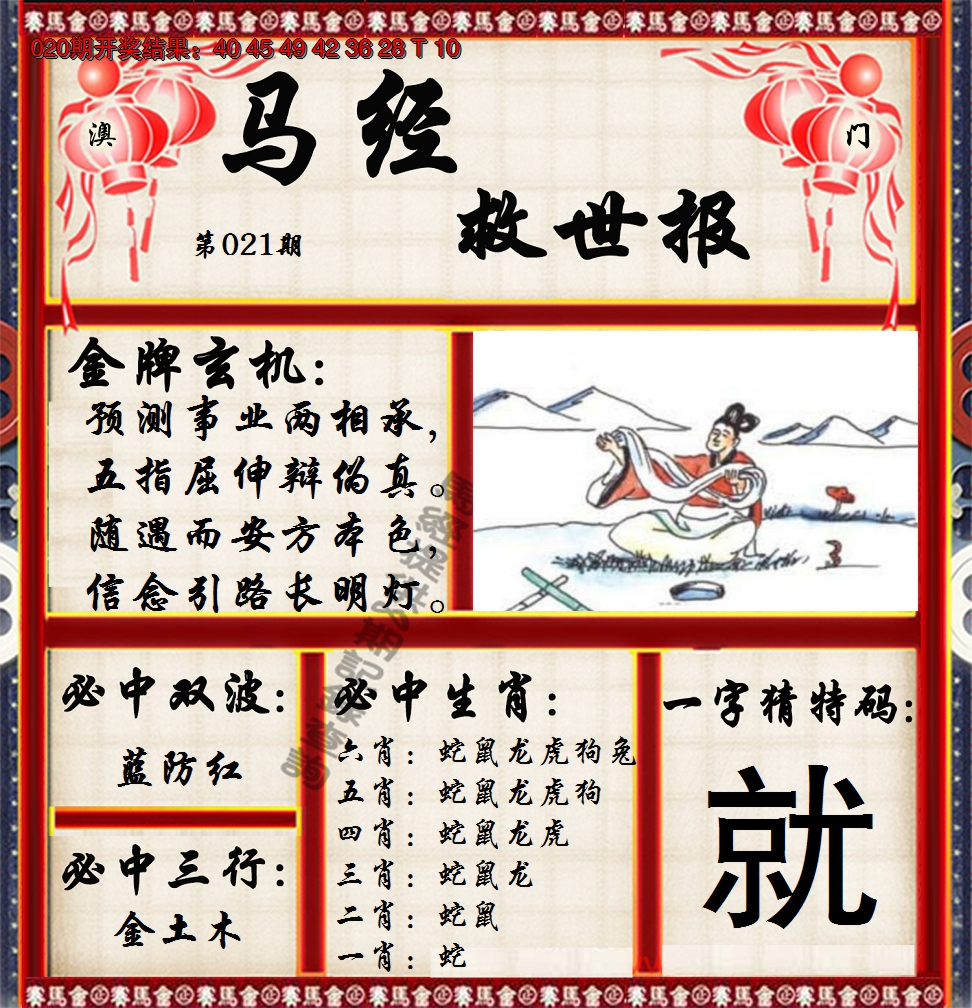 020期开奖结果：40 45 49 42 36 28 T 10
澳
门
马经
救世报
第021期
金牌玄机：
预测事业两相承，
五指屈伸辩伪真。
随遇而安方本色，
信念引路长明灯。
必中双波：
蓝防红
必中三行：
金土木
必中生肖：
六肖：蛇鼠龙虎狗兔
五肖：蛇鼠龙虎狗
四肖：蛇鼠龙虎
三肖：蛇鼠龙
二肖：蛇鼠
一肖：蛇
一字猜特码：
就